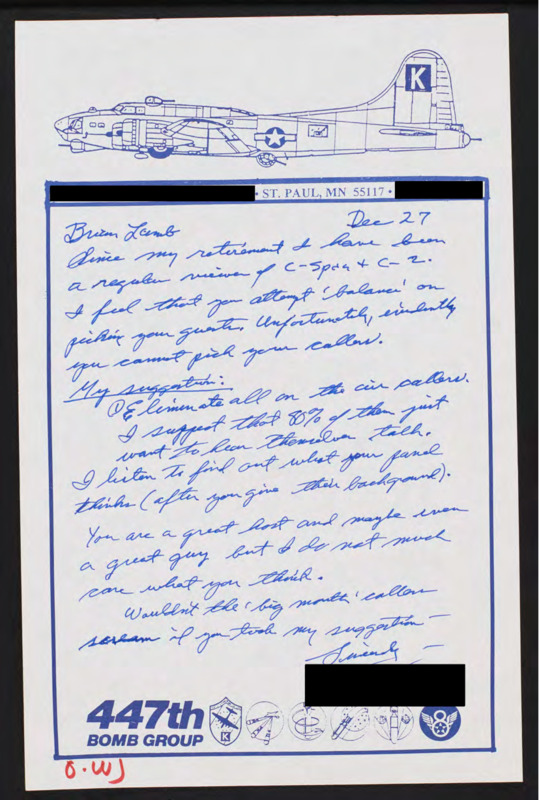 K
• ST. PAUL, MN 55117 •
Dec 27
Brian Lamb
Since my retirement I have been
a regular viewer of C-Span + C-2.
I feel that you attempt 'balance' on
picking your guests. Unfortunately, evidently
you cannot pick your callers.
My suggestion:
① Eliminate all on the air callers.
I suggest that 80% of them just
want to hear themselves talk.
I listen to find out what your panel
thinks (after you give their background).
You are a great host and maybe even
a great guy but I do not much
care what you think.
Wouldn't the 'big mouth' callers
scream if you took my suggestion —
Sincerely —
447th
BOMB GROUP
K
8